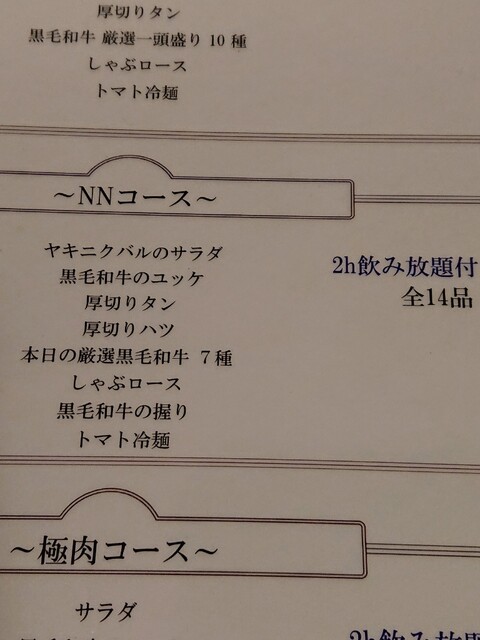 厚切りタン
黒毛和牛 厳選一頭盛り 10 種
しゃぶロース
トマト冷麺
～NNコース～
ヤキニクバルのサラダ
黒毛和牛のユッケ
厚切りタン
厚切りハツ
本日の厳選黒毛和牛 7 種
しゃぶロース
黒毛和牛の握り
トマト冷麺
2h飲み放題付
全14品
～極肉コース～
サラダ
2h飲み放題